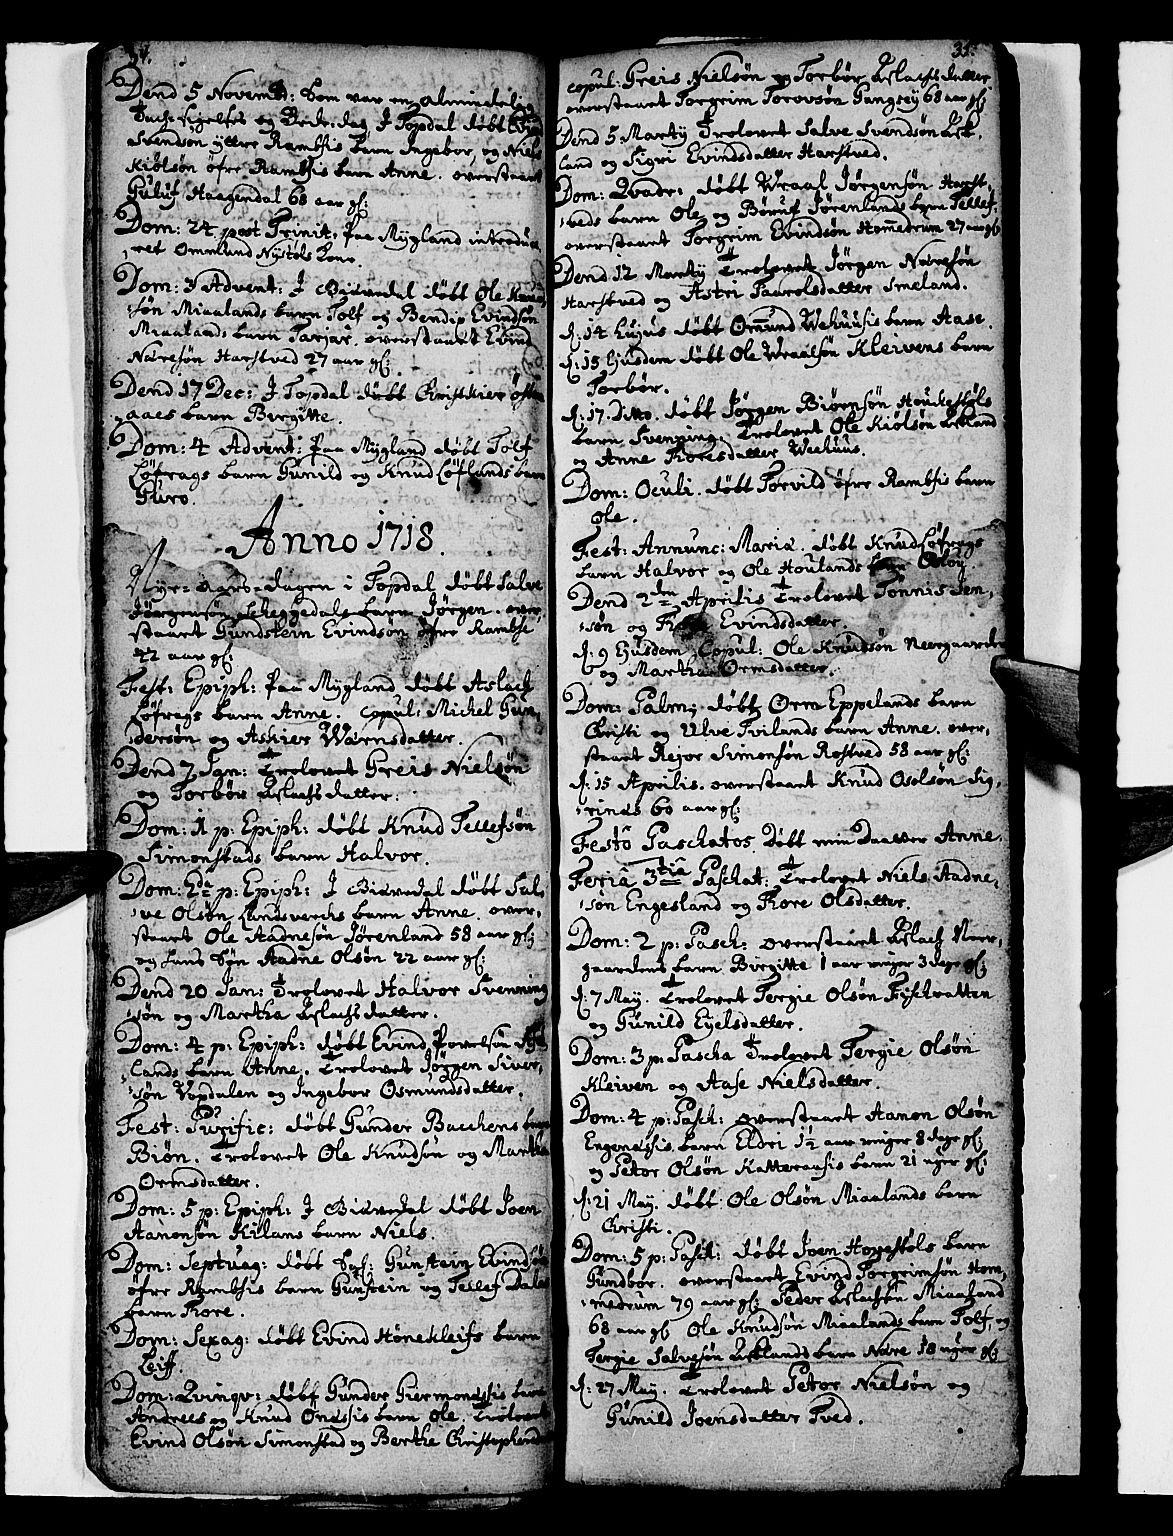 34.
Dend 5 Novemb: som var en almindelig
Tach-sigelses og Bede-dag, J Topdal døbt
Svendsøn yttre Ramsis barn Ingebor, og Niels
Kiølsøn øfre Ramsis barn Anne. overstaaet
Guluf Haagendal 68 aar gl:
Dom: 24 post Trinit: paa Mygland introdu
ret Ommund Nystøls Kone.
Dom: 3 Advent: J døbt Ole
søn Miaalands barn Tolf og Bendix Evindsøn
Miaalands barn Tarjær. overstaaet Evind
Næresøn Harstved 27 aar gl.
Dend 17 Dec: J Topdal døbt
aaes barn Birgitte.
Dom: 4 Advent: paa Mygland døbt Tolf
Løfrags barn Gunild og Knud Løflands barn
Guro.
Anno 1718.
Nyt-aars-dagen i Topdal døbt Salve
Jørgensøn barn Jørgen. over-
staaet Gundstein Evindsøn øfre Ramse
22 aar gl:
Fest: Epiph: paa Mygland døbt Aslach
Løfrags barn Anne. Copul: Michel Gun-
dersøn og Askier Warnsdatter.
Dend 7 Jan: Trolovet Greis Nielsøn
og Torbør Aslachsdatter.
Dom: 1 p: Epiph: døbt Knud Tellefsøn
Simonstads barn Halvor.
Dom: 2da p: Epiph: J døbt Sal-
ve Olsøn Landsverchs barn Anne. over-
staaet Ole Aadnesøn Jørenland 58 aar gl:
og hans Søn Aadne Olsøn 22 aar gl:
Dend 20 Jan: Trolovet Halvor Svenning
søn og Martha Aslachsdatter.
Dom: 4 p: Epiph: døbt Evind Povelsøn
lands barn Anne. Trolovet Jørgen Siver-
søn Vopdalen og Ingebor Osmundsdatter.
Fest: Purific: døbt Gunder Bacchens barn
Biøn. Trolovet Ole Knudsøn og Martha
Ormsdatter.
Dom: 5 p: Epiph: J døbt Joen
Aanonsøn Kilans barn Niels.
Dom: Septuag: døbt Sal: Gunstein Evindsøn
øfre Ramsis barn Gunstein og Tellef
barn Tore.
Dom: Sexag: døbt Evind Hønekleifs barn
Leiff.
Dom: Qvinqv: døbt Gunder barn
Andrees og Knud barn Ole. Trolovet
Evind Olsøn Simonstad og Berthe
35.
Copul: Greis Nielsøn og Torbør Aslachsdatter
overstaaet Torgrim Torovsøn 68 aar gl:
Dend 5 Marty Trolovet Salve Svendsøn Ask-
land og Sigri Evindsdatter Harstved.
Dom: Qvadr: døbt Wraal Jørgensøn Harst-
veds barn Ole og Børuf Jørenlands barn Tellef.
overstaaet Torgrim Evindsøn Hommedrum 27 aar gl
Dend 12 Marty Trolovet Jørgen Næresøn
Harstved og Astri Taarolsdatter Smeland.
d: 14 hujus døbt Ommund Wehuusis barn Aase.
d: 15 Ejusdem døbt Ole Wraalsøn Kleivens barn
Torbør.
d: 17. Ditto. døbt Jørgen Biørnsøn
barn Svenning. Trolovet Ole Kiølsøn Askland
og Anne Toresdatter Weehuus.
Dom: Oculi. døbt Torvild øfre Ramsis barn
Ole.
Fest: Annunc: Mariæ. døbt Knud Løfrags
barn Halvor og Ole Houlands barn Osloy.
Dend 2den Aprilis Trolovet Tonnis Jen-
søn og Evindsdatter.
d: 9 Ejusdem Copul: Ole Knudsøn Neergaarden
og Martha Ormsdatter.
Dom: Palm: døbt Orm Eppelands barn
Christi og Ulve Tvilands barn Anne. over-
staaet Rejor Simonsøn Rostved 58 aar gl:
d: 15 Aprilis. overstaaet Knud Osolson Sig-
rinæs 60 aar gl:
Festo Paschatos. døbt min Daatter Anne.
Feria 3tia Paschat: Trolovet Niels Aadne-
søn Engesland og Tore Olsdatter.
Dom: 2 p: Pasch: overstaaet Aslach Neer-
gaardens barn Birgitte 1 aar ringer 3 dage gl:
d: 7 May. Trolovet Tergie Olsøn Fischvatten
og Gunild Eyelsdatter.
Dom: 3 p: Pascha Trolovet Tergie Olsøn
Kleiven og Aase Nielsdatter.
Dom: 4 p: Pasch: overstaaet Aanon Olsøn
barn Eldri 1½ aar ringer 8 dage gl:
og Petor Olsøn barn 21 uger gl:
d: 21 May. døbt Ole Olsøn Miaalands barn
Christi.
Dom: 5 p: Pasch: døbt Joen barn
Gundbor. overstaaet Evind Torgrimsøn Hom-
medrum 79 aar gl: Peder Aslachsøn Miaaland
68 aar gl Ole Knudsøn Miaalands barn Tolf, og
Tergie Salvesøn Asklands barn Nære 18 uger gl:
d: 27 May. Trolovet Petor Nielsøn og
Gunild Joensdatter Tved.